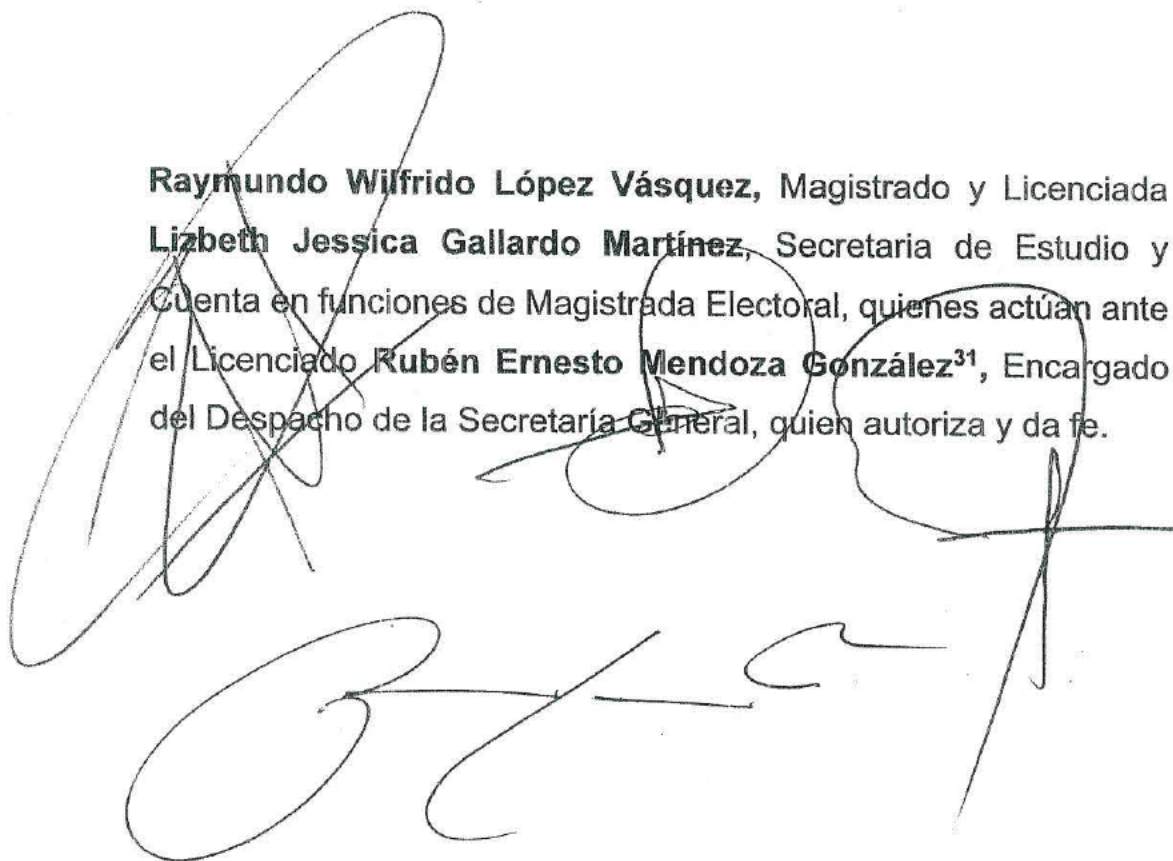 Raymundo Wilfrido López Vásquez, Magistrado y Licenciada
Lizbeth Jessica Gallardo Martínez, Secretaria de Estudio y
Cuenta en funciones de Magistrada Electoral, quienes actúan ante
el Licenciado Rubén Ernesto Mendoza González³¹, Encargado
del Despacho de la Secretaría General, quien autoriza y da fe.